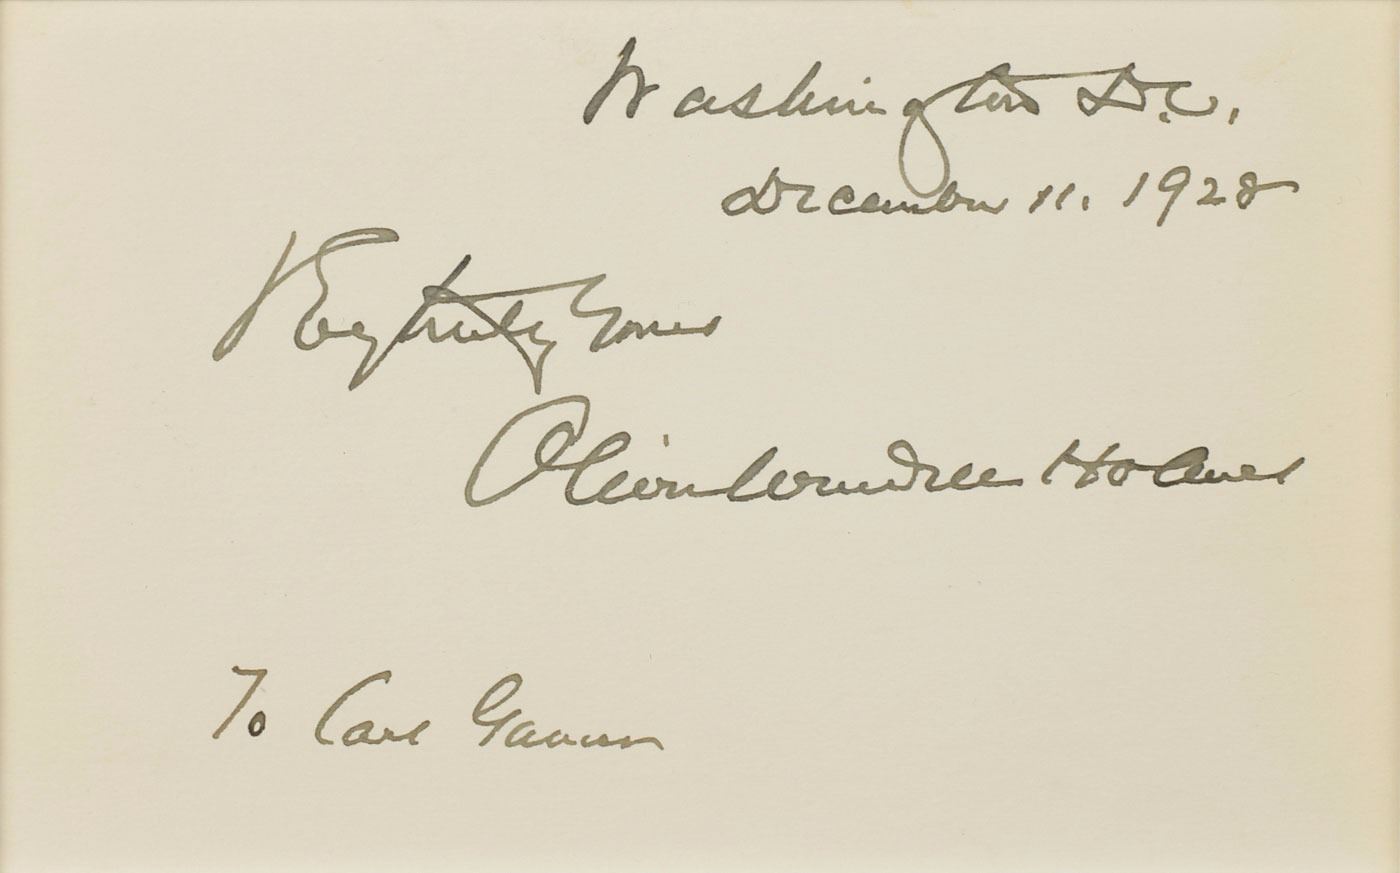 Washington D.C.,
December 11. 1928
Very truly Yours
Oliver Wendell Holmes
To Carl